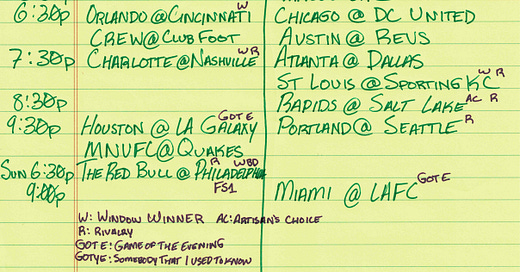 6:30p ORLANDO @ CINCINNATI W CHICAGO @ DC UNITED
CREW @ CLUB FOOT AUSTIN @ REVS
7:30p CHARLOTTE @ NASHVILLE W R ATLANTA @ DALLAS
ST LOUIS @ SPORTING KC W R
8:30p RAPIDS @ SALT LAKE AC R
9:30p HOUSTON @ LA GALAXY GOTE PORTLAND @ SEATTLE R
MNUFC @ QUAKES
SUN 6:30p THE RED BULL @ PHILADELPHIA R WBD FS1
9:00p MIAMI @ LAFC GOTE
W: WINDOW WINNER AC: ARTISAN'S CHOICE
R: RIVALRY
GOTE: GAME OF THE EVENING
GOTYE: SOMEBODY THAT I USED TO KNOW